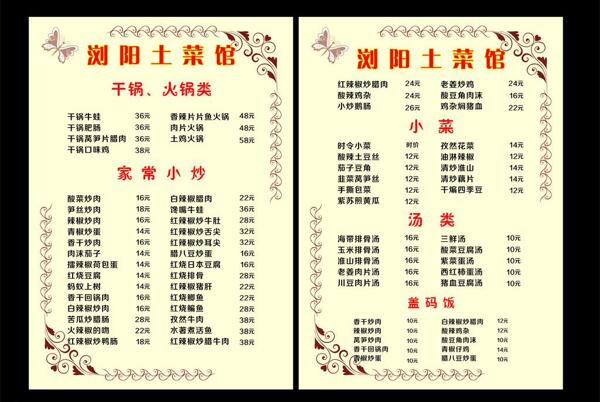 浏阳土菜馆
干锅、火锅类
干锅牛蛙 36元 香辣片片鱼火锅 48元
干锅肥肠 36元 肉片火锅 48元
干锅莴笋片腊肉 36元 土鸡火锅 58元
干锅口味鸡 38元
家常小炒
酸菜炒肉 16元 白辣椒腊肉 22元
笋丝炒肉 16元 馋嘴牛蛙 36元
辣椒炒肉 16元 红辣椒炒牛肚 28元
青椒炒蛋 14元 红辣椒炒舌尖 32元
香干炒肉 16元 红辣椒炒耳尖 32元
肉沫茄子 14元 腊八豆炒蛋 16元
擂辣椒荷包蛋 16元 红烧日本豆腐 16元
红烧豆腐 14元 红烧排骨 28元
蚂蚁上树 14元 红辣椒猪肝 22元
香干回锅肉 16元 红烧鲫鱼 22元
白辣椒炒肉 16元 红烧鳊鱼 22元
苦瓜炒腊肠 28元 孜然牛肉 38元
火辣椒的吻 22元 水煮煮活鱼 38元
红辣椒炒鸭肠 18元 红辣椒炒腊牛肉 38元
浏阳土菜馆
红辣椒炒腊肉 24元 老姜炒鸡 24元
酸辣鸡杂 24元 酸豆角肉沫 16元
小炒鹅肠 26元 鸡杂焖猪血 22元
小菜
时令小菜 时价 孜然花菜 14元
酸辣土豆丝 12元 油淋辣椒 12元
茄子豆角 12元 清炒淮山 14元
韭菜莴笋丝 12元 清炒藕片 14元
手撕包菜 12元 干煸四季豆 12元
紫苏煎黄瓜 12元
汤类
海带排骨汤 16元 三鲜汤 10元
玉米排骨汤 16元 酸菜豆腐汤 10元
淮山排骨汤 16元 紫菜蛋汤 10元
老姜肉片汤 16元 西红柿蛋汤 10元
川豆肉片汤 16元 猪血豆腐汤 10元
盖码饭
香干炒肉 10元 白辣椒炒腊肉 12元
辣椒炒肉 10元 酸辣鸡杂 12元
莴笋炒肉 10元 酸豆角肉沫 10元
香干回锅肉 10元 青椒仔鸡 14元
青椒炒蛋 10元 腊八豆炒蛋 12元